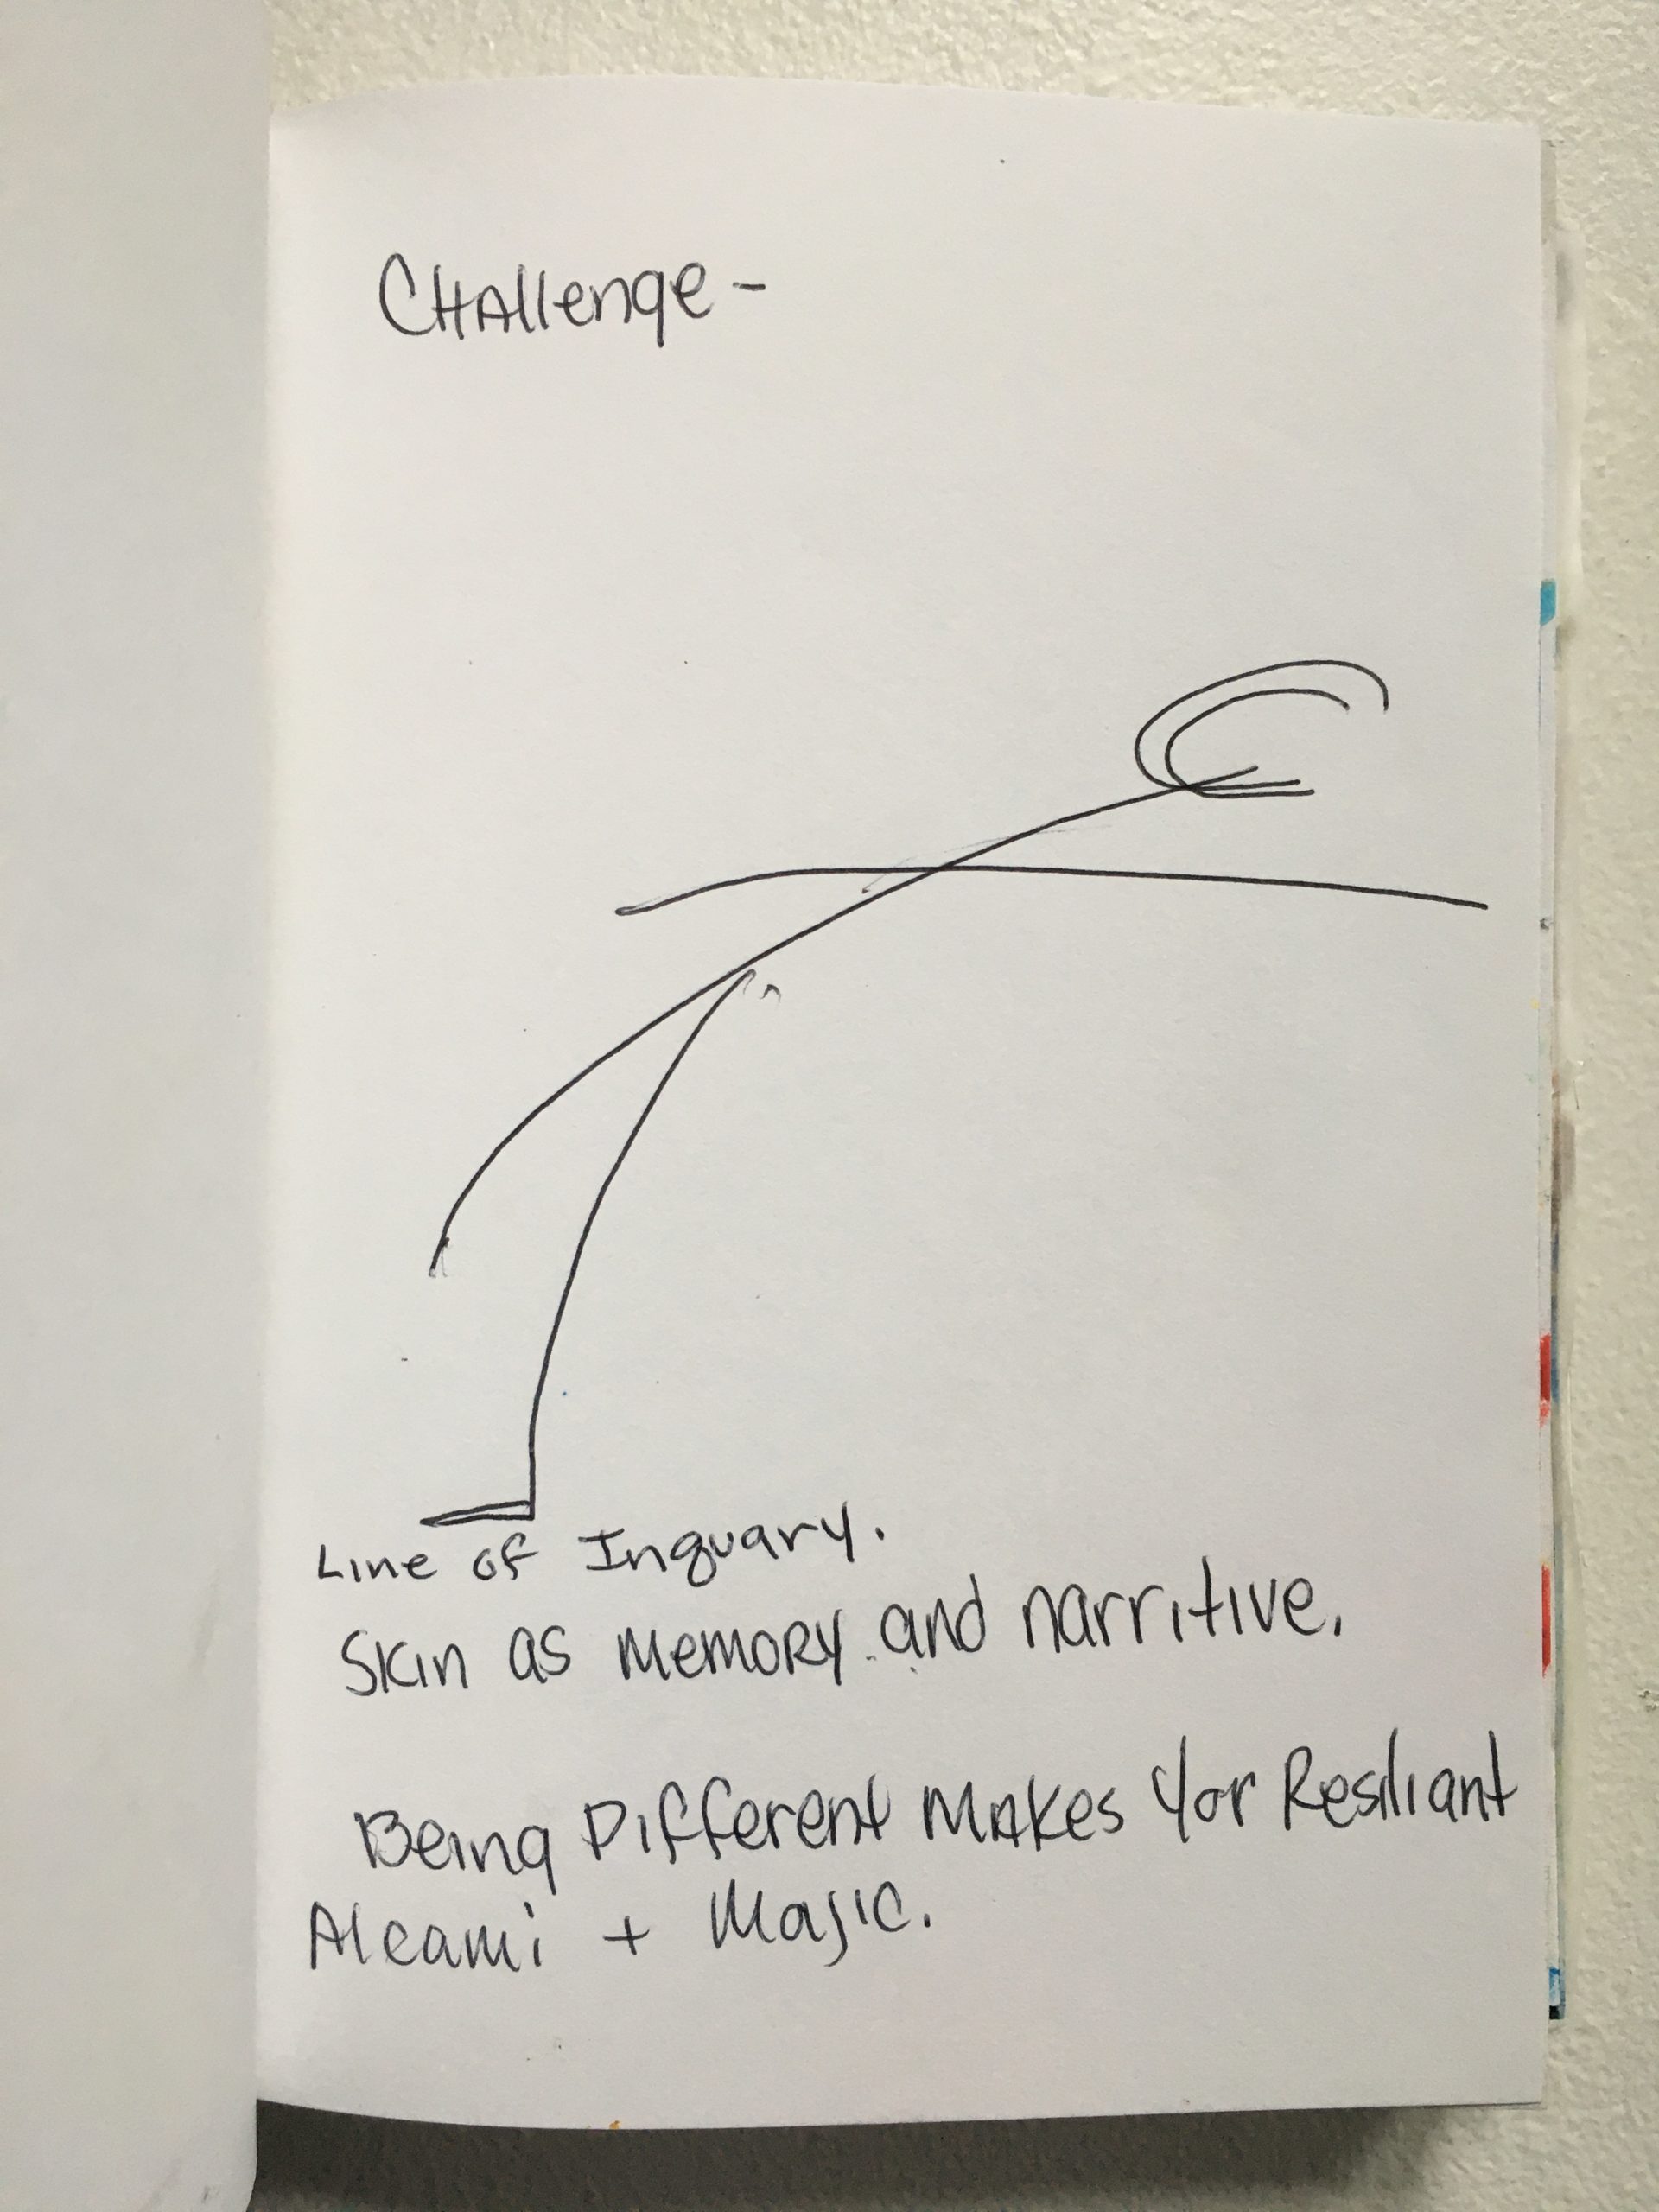 CHAllenge -
Line of Inquary.
Skin as memory and narritive.
Being Different Makes Yor Resiliant
Alcami + Majic.